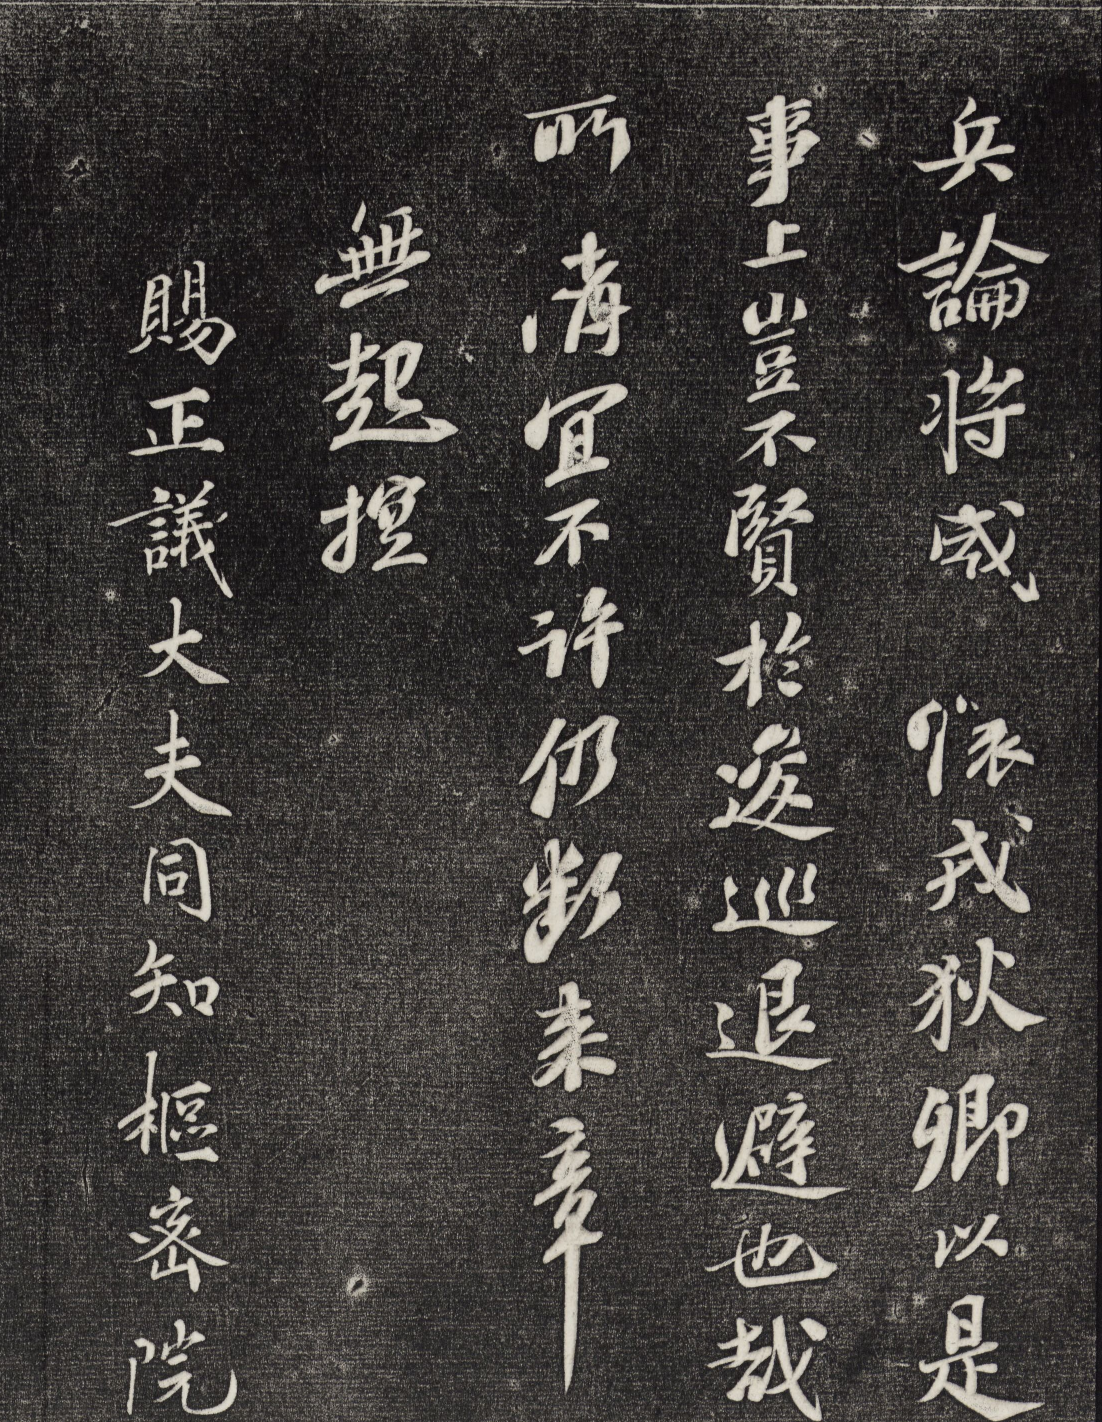 兵論將威懷戎狄卿以是
事上豈不賢於逡巡退避也哉
所請宜不許仍斷來章
無起擬
賜正議大夫同知樞密院